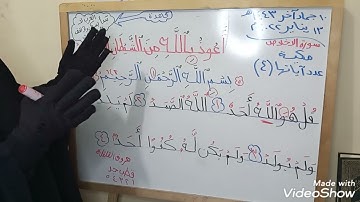 ١٠ جماد آخر ١٤٤٣ هـ
١٣ يناير ٢٠٢٢ م
سورة الإخلاص
مكية
عدد آياتها (٤)
أعوذ بالله من الشيطان
بسم الله الرحمن الرحيم
قل هو الله أحد ١ الله الصمد ٢ لم يلد
ولم يولد ٣ ولم يكن له كفوا أحد ٤
Made with
VideoShow